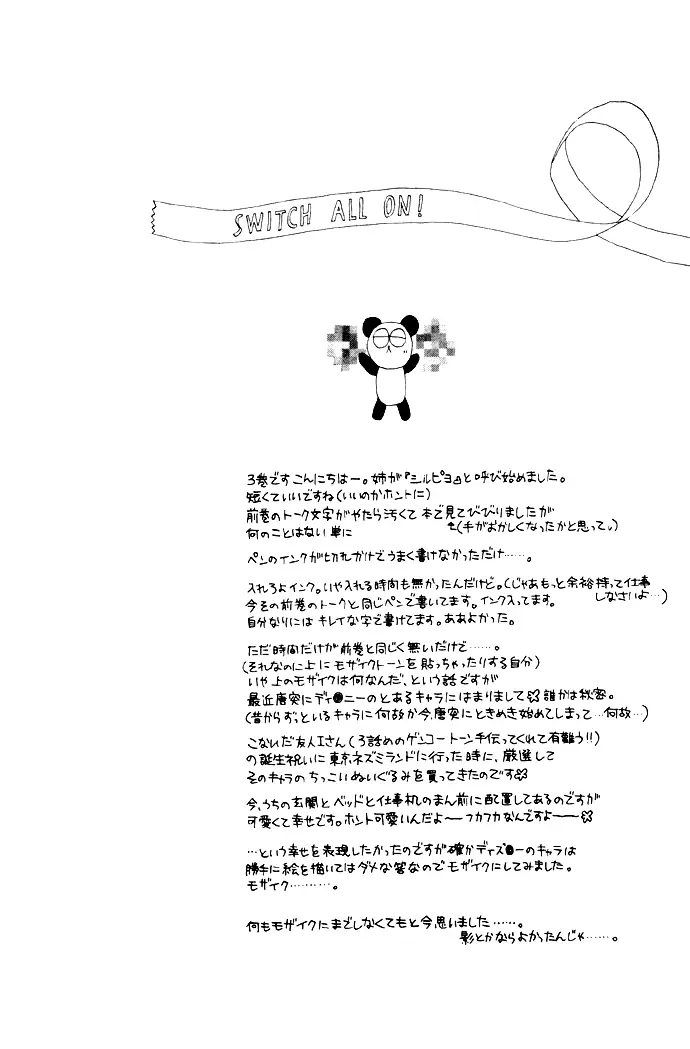 SWITCH ALL ON!
3巻ですこんにちはー。姉が『ミルピヨ』と呼び始めました。
短くていいですね(いいのかホントに)
前巻のトーク文字がやたら汚くて本で見てびびりましたが
(手がおかしくなったかと思って。)
何のことはない単に
ペンのインクが切れかけでうまく書けなかっただけ……。
入れろよインク。いや入れる時間も無かったんだけど。(じゃあもっと余裕持って仕事
しなさいよ…)
今その前巻のトークと同じペンで書いてます。インク入ってます。
自分なりにはキレイな字で書けてます。ああよかった。
ただ時間だけが前巻と同じく無いだけで……。
(それなのに上にモザイクトーンを貼っちゃったりする自分)
いや上のモザイクは何なんだ、という話ですが
最近唐突にディ●ニーのとあるキャラにはまりまして 誰かは秘密。
(昔からずっといるキャラに何故か今、唐突にときめき始めてしまって…何故…)
こないだ友人Iさん(3話めのゲンコートーン手伝ってくれて有難う!!)
の誕生祝いに東京ネズミランドに行った時に、厳選して
そのキャラのちっこいぬいぐるみを買ってきたのです
今、うちの玄関とベッドと仕事机のまん前に配置してあるのですが
可愛くて幸せです。ホント可愛いんだよ——フカフカなんですよ——
…という幸せを表現したかったのですが確かディズ●ーのキャラは
勝手に絵を描いてはダメな筈なのでモザイクにしてみました。
モザイク………。
何もモザイクにまでしなくてもと今思いました……。
影とかならよかったんじゃ……。